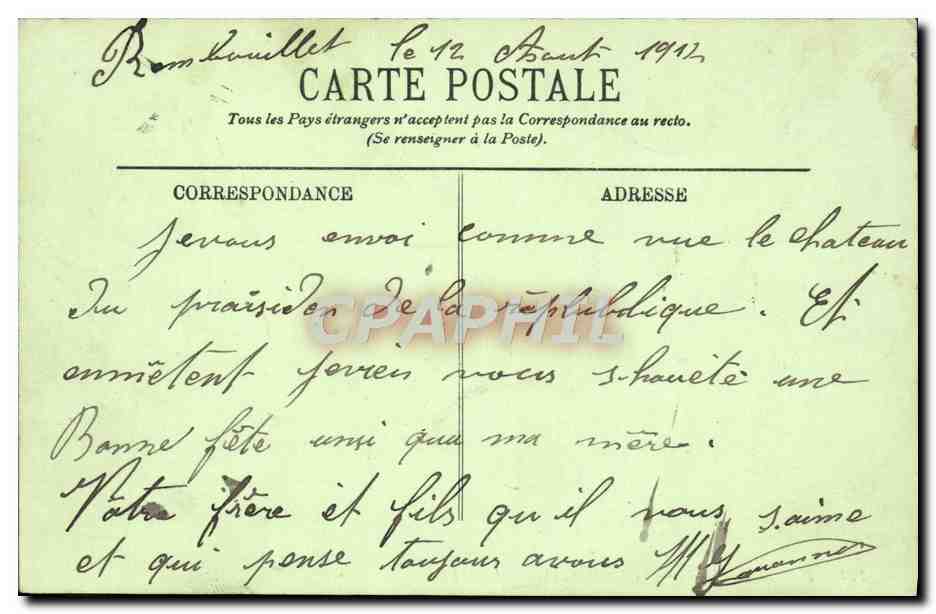 Rambouillet le 12 Aout 1912
CARTE POSTALE
Tous les Pays étrangers n'acceptent pas la Correspondance au recto.
(Se renseigner à la Poste).
CORRESPONDANCE
ADRESSE
Jevous envoi comme vue le chateau
du praisiden de la républdique. Et
enmêtent jevien vous shouété une
Bonne fête ansi qua ma mêre.
Vôtre frère et fils qu'il vous saime
et qui pense toujours avous
CPAPHIL